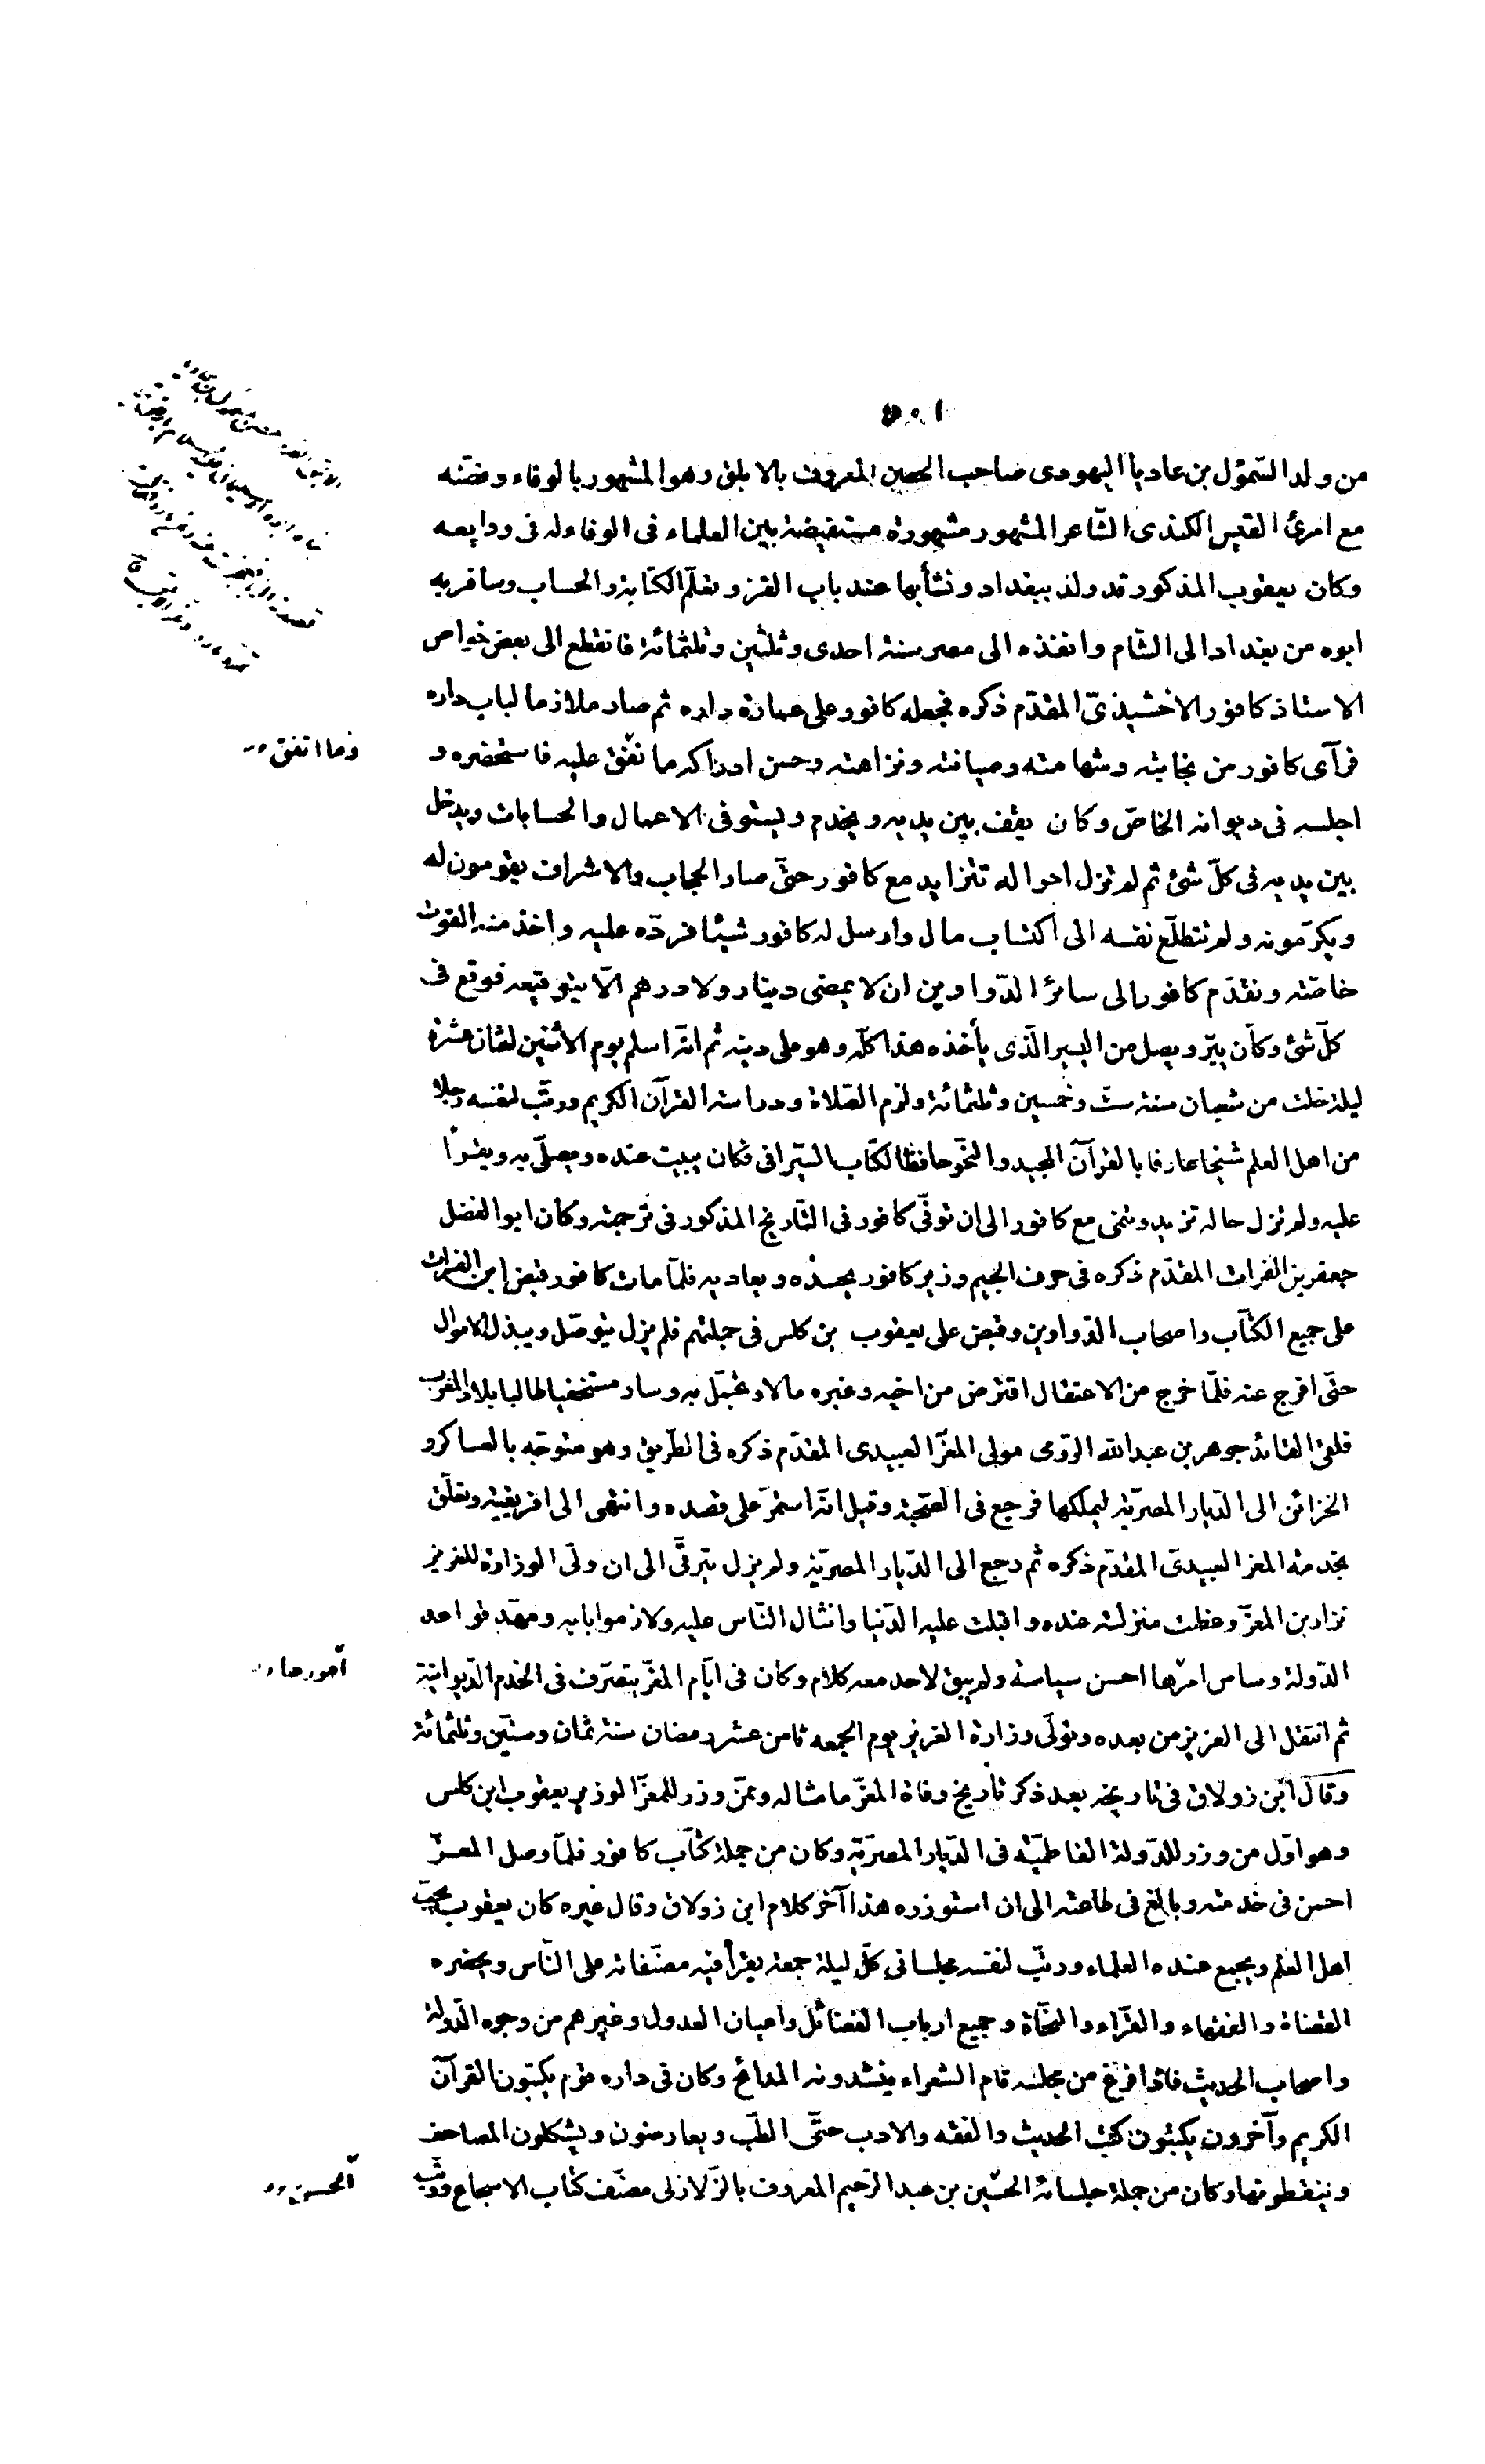 من ولد السّمؤل بن عاديا اليهودى صاحب الحصن المعروف بالابلق وهو المشهور بالوفاء وقصّته
مع امرئ القيس الكندى الشّاعر المشهور مشهورة مستفيضة بين العلماء فى الوفاء له فى ودايعه
وكان يعقوب المذكور قد ولد ببغداد ونشأ بها عند باب القز وتعلّم الكتابة والحساب وسافر به
ابوه من بغداد الى الشّام وانفذه الى مصر سنة احدى وثلثين وثلثمائة فانقطع الى بعض خواص
الاستاذ كافور الاخشيذىّ المقدّم ذكره فجعله كافور على عمارة داره ثم صار ملازما لباب داره
فرآى كافور من نجابته وشهامته وصيانته ونزاهته وحسن ادراكه ما نفق عليه فاستحضره و
وما اتفق
اجلسه فى ديوانه الخاصّ وكان يقف بين يديه ويخدم ويستوفى الاعمال والحسابات ويدخل
بين يديه فى كلّ شئ ثم لم تزل احواله تتزايد مع كافور حتّى صار الحجاب والاشراف يقومون له
ويكرّمونه ولم تتطلّع نفسه الى اكتساب مال وارسل له كافور شيئا فردّه عليه واخذ منه القوت
خاصّته وتقدّم كافور الى سائر الدّواوين ان لا يمضى دينار ولا درهم الّا بتوقيعه فوقع فى
كلّ شئ وكان يبرّ ويصل من اليسير الّذى يأخذه هذا كلّه وهو على دينه ثم انّه اسلم يوم الاثنين لثمان عشرة
ليلة خلت من شعبان سنة ستّ وخمسين وثلثمائة ولزم الصّلاة ودراسة القرآن الكريم ورتّب لنفسه رجلا
من اهل العلم شيخا عارفا بالقرآن المجيد والنّحو حافظا لكتاب السّيرافى فكان يبيت عنده ويصلّى به ويقرأ
عليه ولم تزل حاله تزيد وتنمى مع كافور الى ان توفّى كافور فى التّاريخ المذكور فى ترجمته وكان ابو الفضل
جعفر بن الفرات المقدّم ذكره فى حرف الجيم وزير كافور يحسده ويعاديه فلمّا مات كافور قبض ابن الفرات
على جميع الكتّاب واصحاب الدّواوين وقبض على يعقوب بن كلس فى جملتهم فلم يزل يتوصّل ويبذل الاموال
حتّى افرج عنه فلمّا خرج من الاعتقال اقترض من اخيه وغيره مالا وتجمّل به وسار مستخفيا طالبا بلاد المغرب
فلقى القائد جوهر بن عبد الله الرّومى مولى المعزّ العبيدى المقدّم ذكره فى الطّريق وهو متوجّه بالعساكر و
الخزائن الى الدّيار المصريّة ليملكها فرجع فى الصّحبة وقيل انّه استمرّ على قصده وانتهى الى افريقية وتعلّق
بخدمة المعز العبيدىّ المقدّم ذكره ثم رجع الى الدّيار المصريّة ولم يزل يترقّى الى ان ولّى الوزارة للعزيز
نزار بن المعزّ وعظمت منزلته عنده واقبلت عليه الدّنيا وانثال النّاس عليه ولازموا بابه ومهّد قواعد
الدّولة وساس امرها احسن سياسة ولم يبق لاحد معه كلام وكان فى ايّام المعزّ يتصرّف فى الخدم الدّيوانيّة
امورها
ثم انتقل الى العزيز من بعده وتولّى وزارة العزيز يوم الجمعه ثامن عشر رمضان سنة ثمان وستّين وثلثمائة
وقال ابن زولاق فى تاريخه بعد ذكر تأريخ وفاة المعزّ ما مثاله وممّن وزر للمعزّ الوزير يعقوب ابن كلس
وهو اوّل من وزر للدّولة الفاطميّة فى الدّيار المصريّة وكان من جملة كتّاب كافور فلمّا وصل المعزّ
احسن فى خدمته وبالغ فى طاعته الى ان استوزره هذا آخر كلام ابن زولاق وقال غيره كان يعقوب يحبّ
اهل العلم ويجمع عنده العلماء ورتّب لنفسه مجلسا فى كلّ ليلة جمعة يقرأ فيه مصنّفاته على النّاس ويحضره
القضاة والفقهاء والقرّاء والنّحاة وجميع ارباب الفضائل واعيان العدول وغيرهم من وجوه الدّولة
واصحاب الحديث فاذا فرغ من مجلسه قام الشعراء ينشدونه المدائح وكان فى داره قوم يكتبون القرآن
الكريم وآخرون يكتبون كتب الحديث والفقه والادب حتّى الطّب ويعارضون ويشكلون المصاحف
وينقطونها وكان من جملة جلسائه الحسين بن عبد الرّحيم المعروف بالزّلازلى مصنّف كتاب الاسجاع ورتّب
الحسين